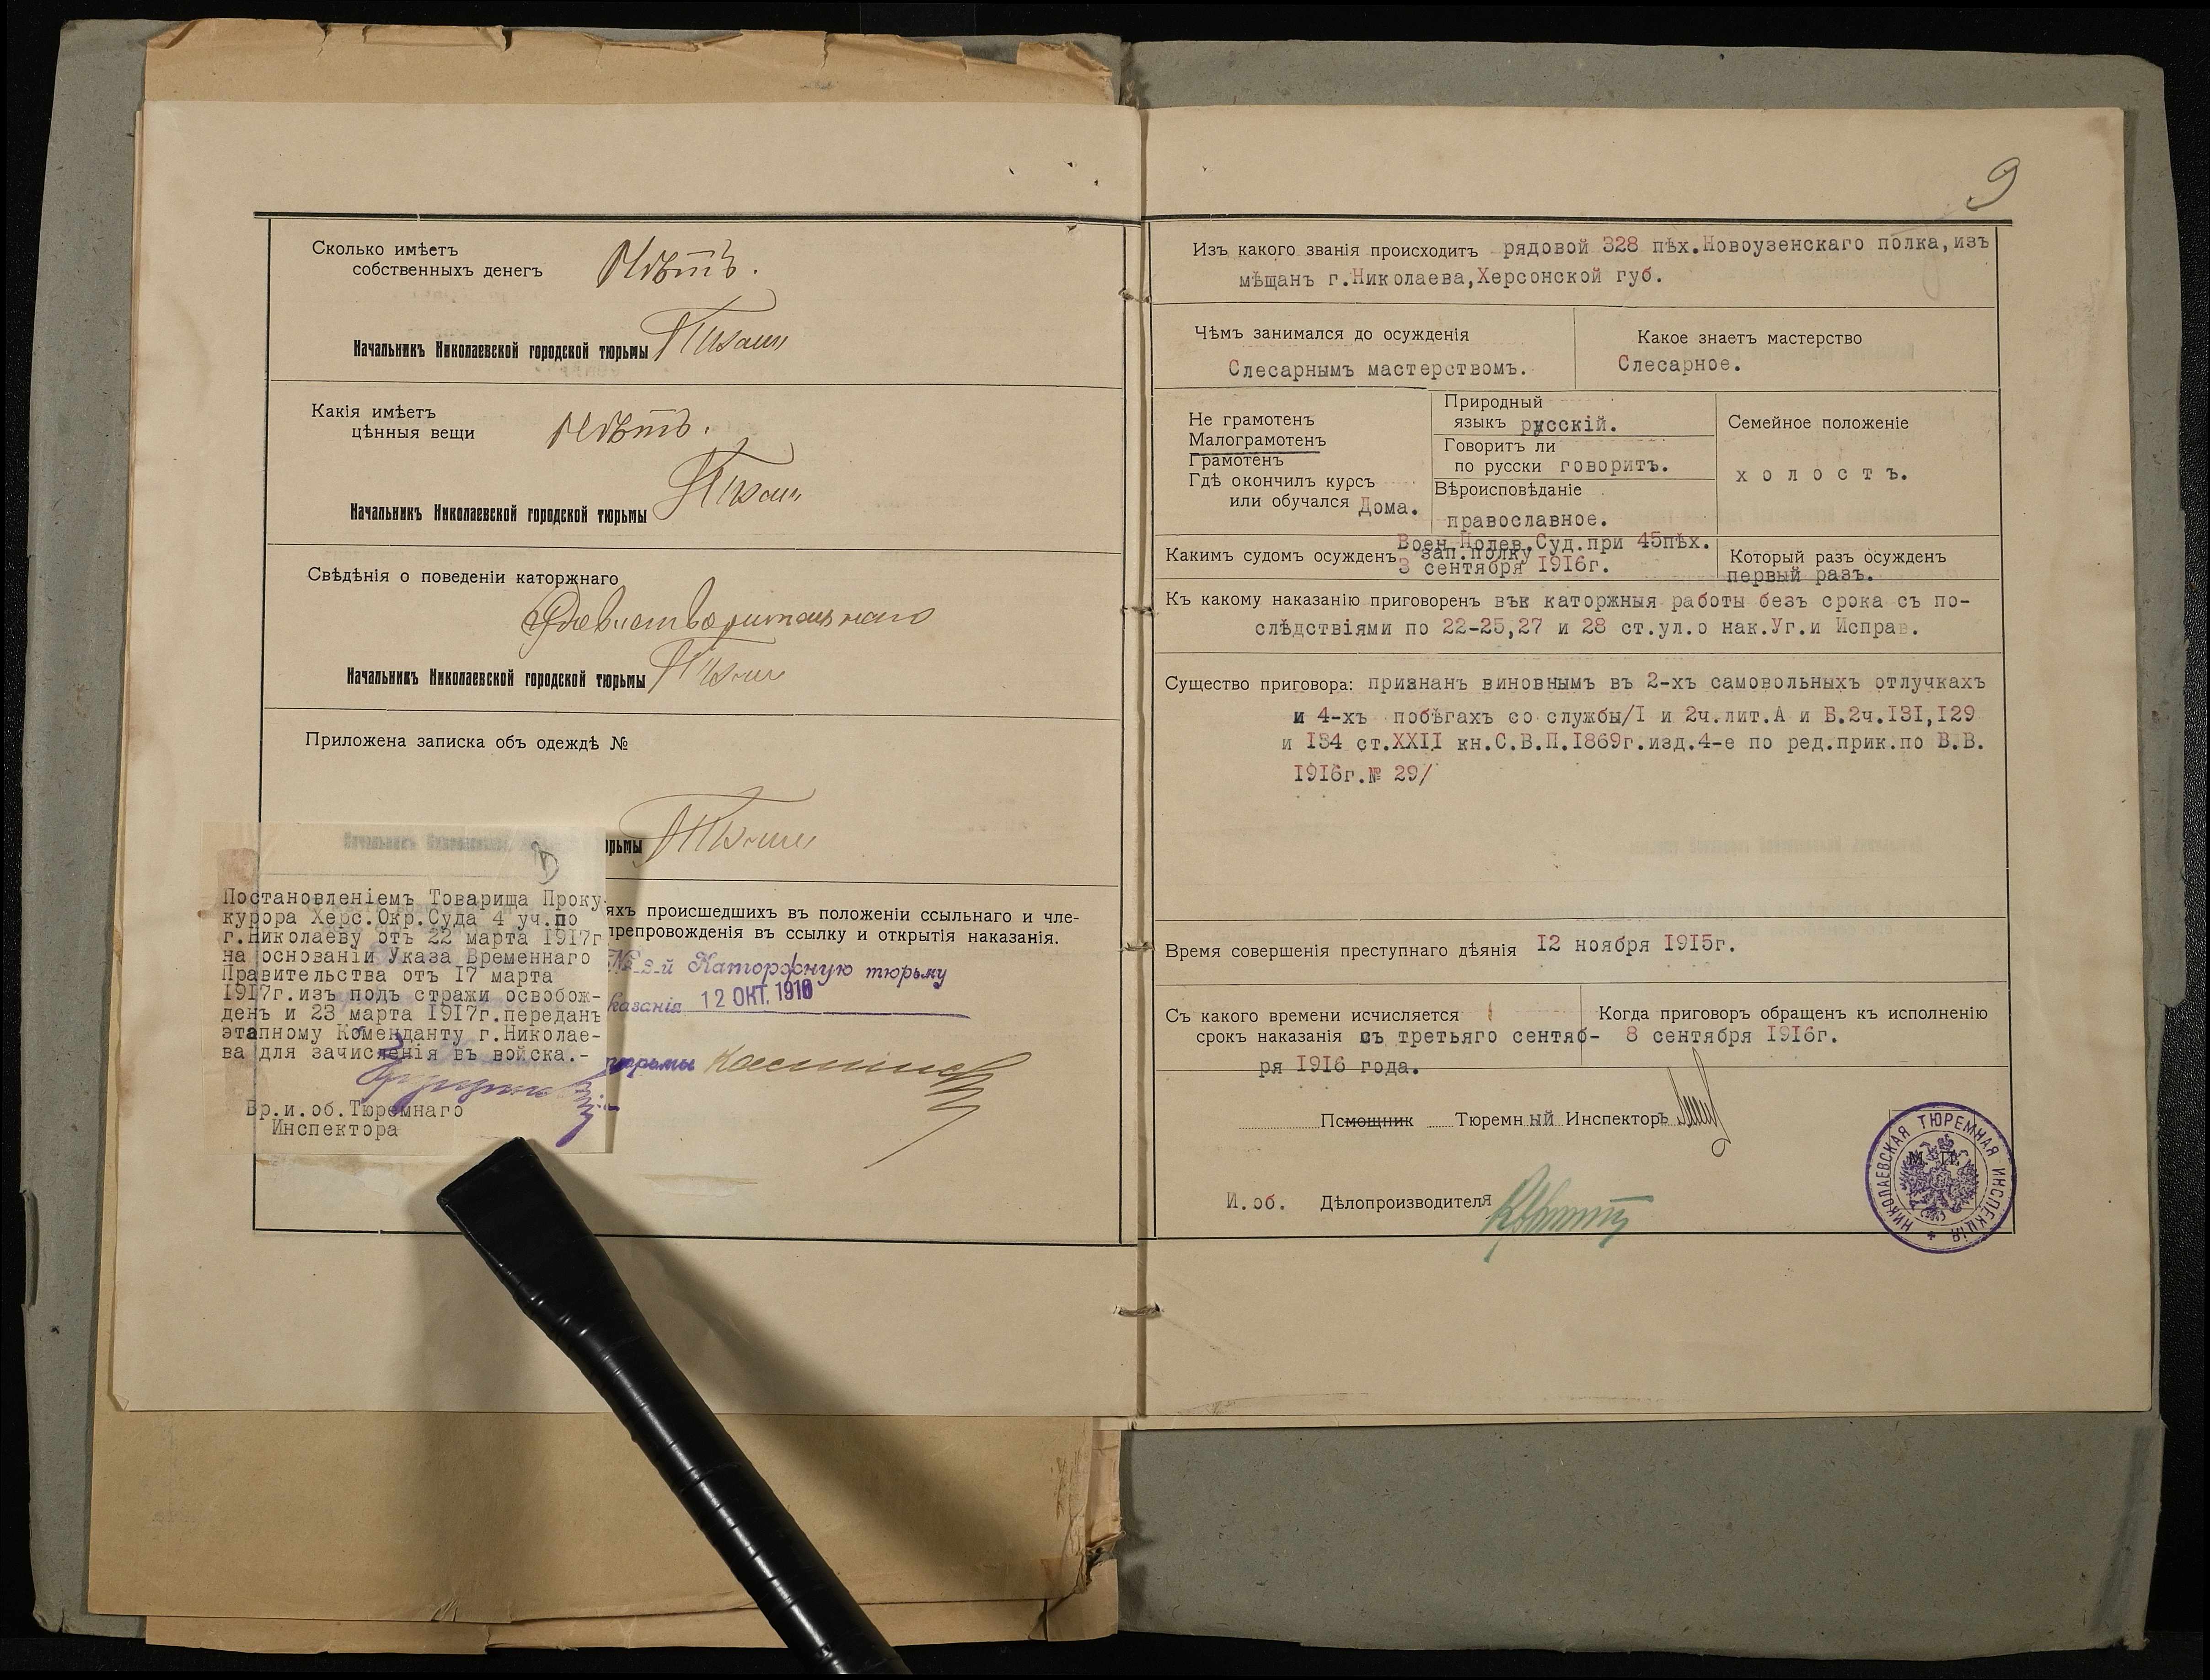 Сколько имѣетъ
собственныхъ денегъ Нѣтъ.
Начальникъ Николаевской городской тюрьмы
Какія имѣетъ
цѣнныя вещи Нѣтъ.
Начальникъ Николаевской городской тюрьмы
Свѣдѣнія о поведеніи каторжнаго
Начальникъ Николаевской городской тюрьмы
Приложена записка объ одеждѣ №
рьмы
Постановленіемъ Товарища Проку-
курора Херс.Окр.Суда 4 уч.по
г.Николаеву отъ 22 марта 1917г
на основаніи Указа Временнаго
Правительства отъ 17 марта
1917г.изъ подъ стражи освобож-
денъ и 23 марта 1917г.переданъ
этапному Коменданту г.Николае-
ва для зачисленія въ войска.-
Вр.и.об.Тюремнаго
Инспектора
яхъ происшедшихъ въ положеніи ссыльнаго и чле-
препровожденія въ ссылку и открытія наказанія.
й Каторжную тюрьму
казанія 12 ОКТ. 1916
тюрьмы
9
Изъ какого званія происходитъ рядовой 328 пѣх.Новоузенскаго полка,изъ
мѣщанъ г.Николаева,Херсонской губ.
Чѣмъ занимался до осужденія
Слесарнымъ мастерствомъ.
Какое знаетъ мастерство
Слесарное.
Не грамотенъ
Малограмотенъ
Грамотенъ
Гдѣ окончилъ курсъ
или обучался Дома.
Природный
языкъ русскій.
Говоритъ ли
по русски говоритъ.
Вѣроисповѣданіе
православное.
Семейное положеніе
х о л о с т ъ.
Воен.Полев.Суд.при 45пѣх.
зап.полку
Какимъ судомъ осужденъ 3 сентября 1916г.
Который разъ осужденъ
первый разъ.
Къ какому наказанію приговоренъ вък каторжныя работы безъ срока съ по-
слѣдствіями по 22-25,27 и 28 ст.ул.о нак.Уг.и Исправ.
Существо приговора: признанъ виновнымъ въ 2-хъ самовольныхъ отлучкахъ
и 4-хъ побѣгахъ со службы/I и 2ч.лит.А и Б.2ч.131,129
и 134 ст.XXII кн.С.В.П.1869г.изд.4-е по ред.прик.по В.В.
1916г.№ 29/
Время совершенія преступнаго дѣянія 12 ноября 1915г.
Съ какого времени исчисляется
срокъ наказанія съ третьяго сентяб-
ря 1916 года.
Когда приговоръ обращенъ къ исполненію
8 сентября 1916г.
Помощник Тюремный Инспекторъ
И.об. Дѣлопроизводителя
НИКОЛАЕВСКАЯ ТЮРЕМНАЯ ИНСПЕКЦІЯ
М. П.